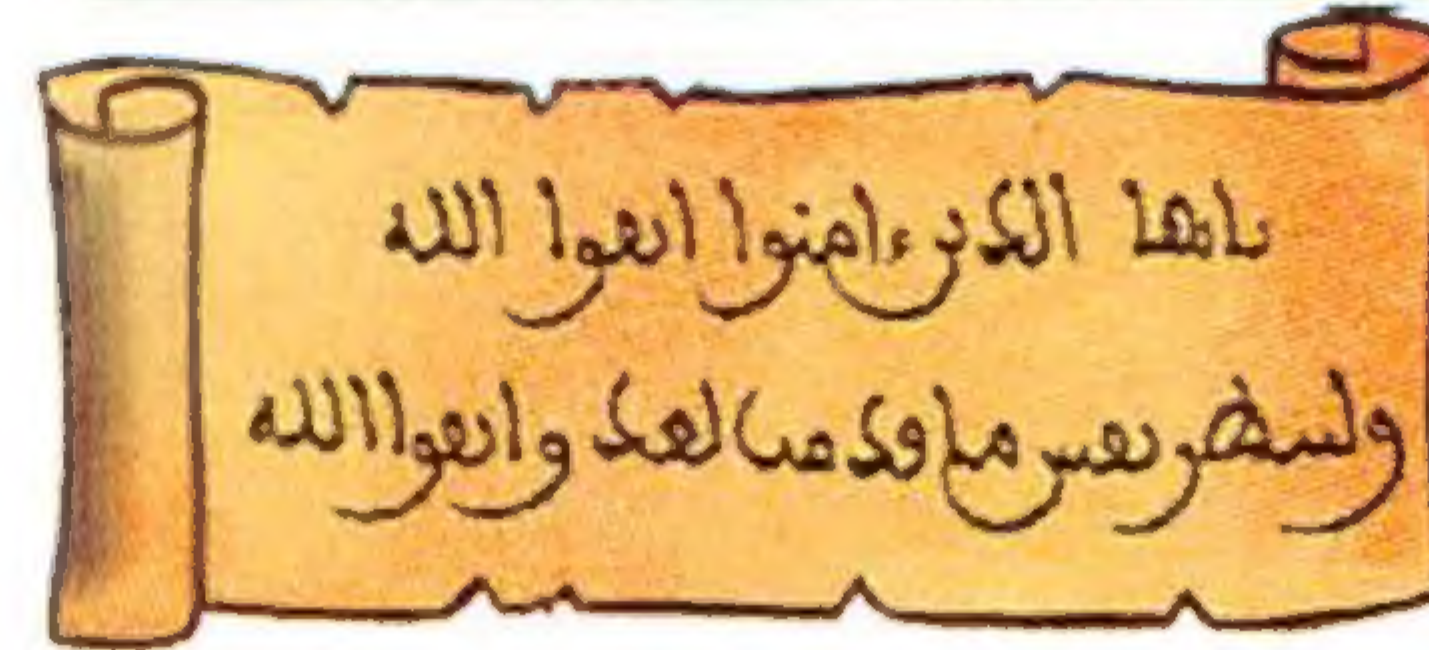 ىاىها الدىں ءامنوا اىٯوا الله
ولىىطر ىڡس ما ٯدمٮ لعد واىٯوا الله